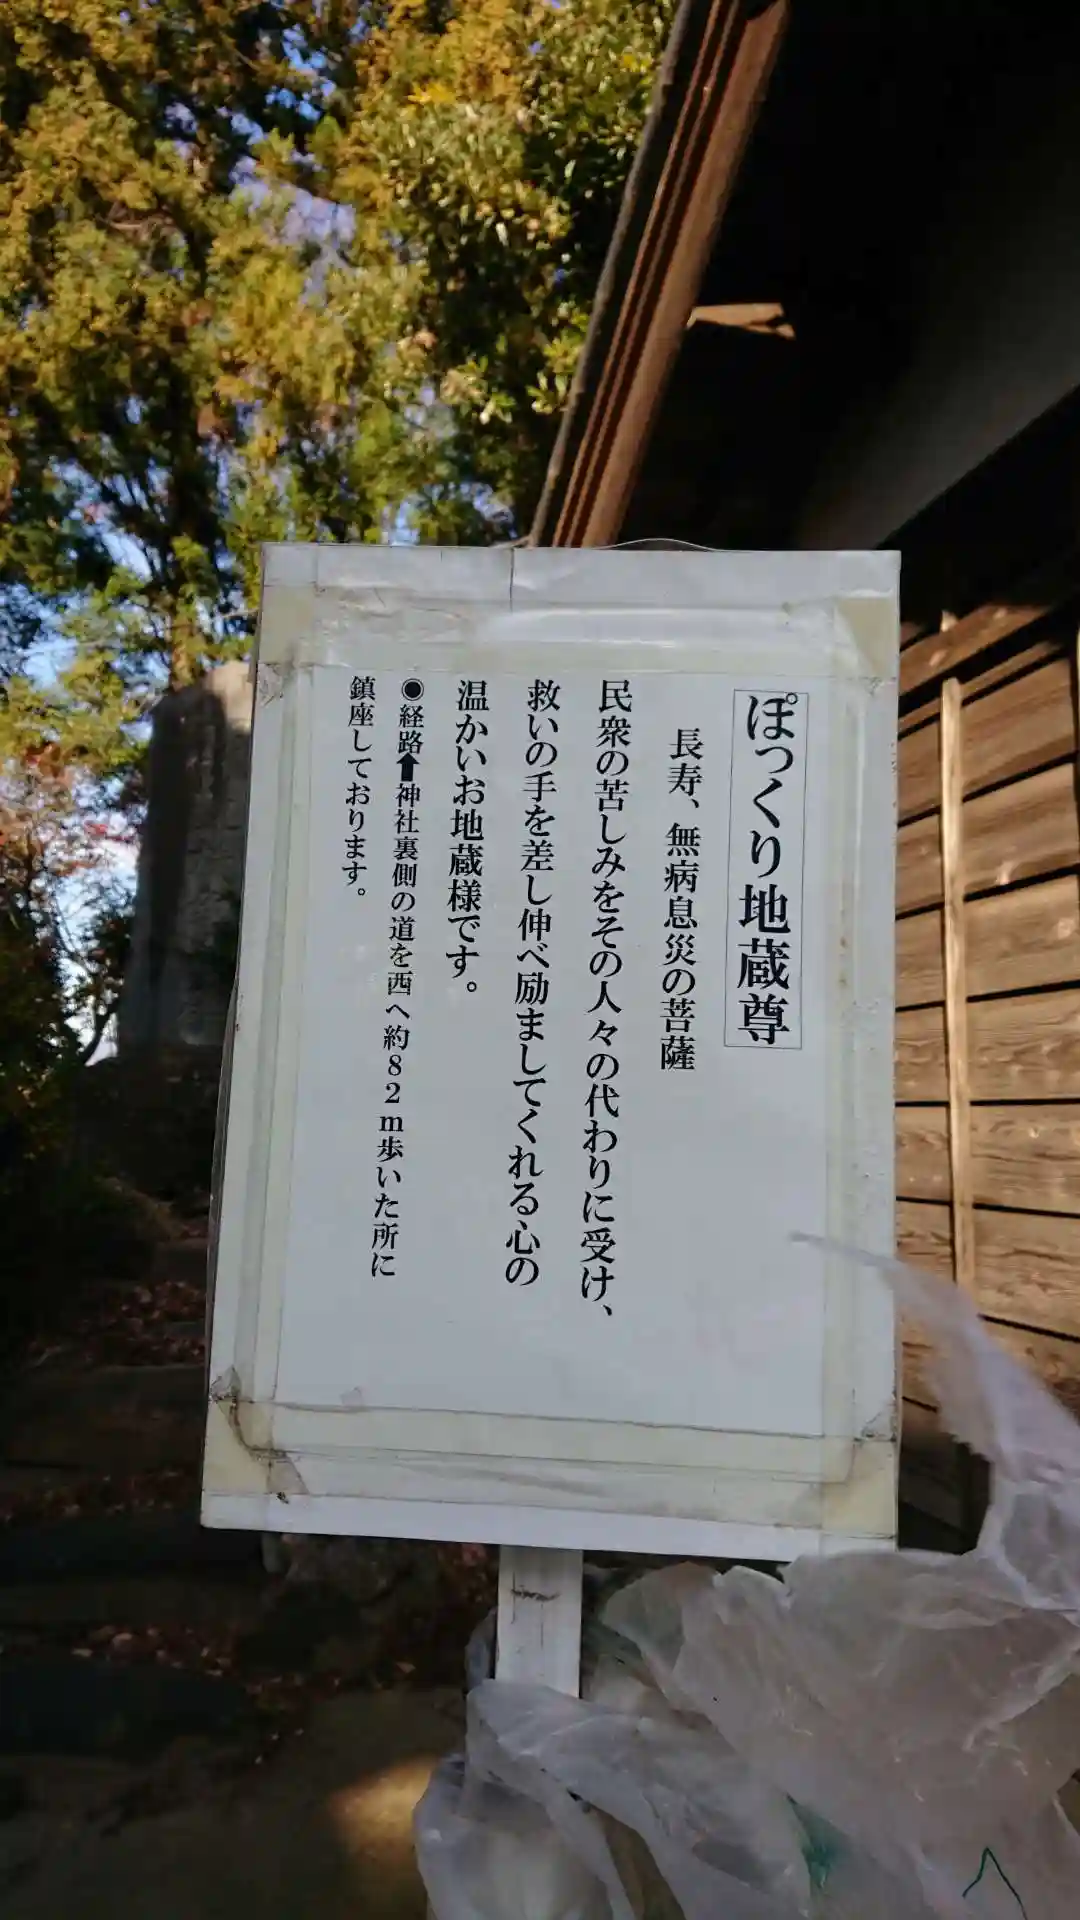 ぽっくり地蔵尊
長寿、無病息災の菩薩
民衆の苦しみをその人々の代わりに受け、
救いの手を差し伸べ励ましてくれる心の
温かいお地蔵様です。
◉経路⬆神社裏側の道を西へ約82m歩いた所に
鎮座しております。